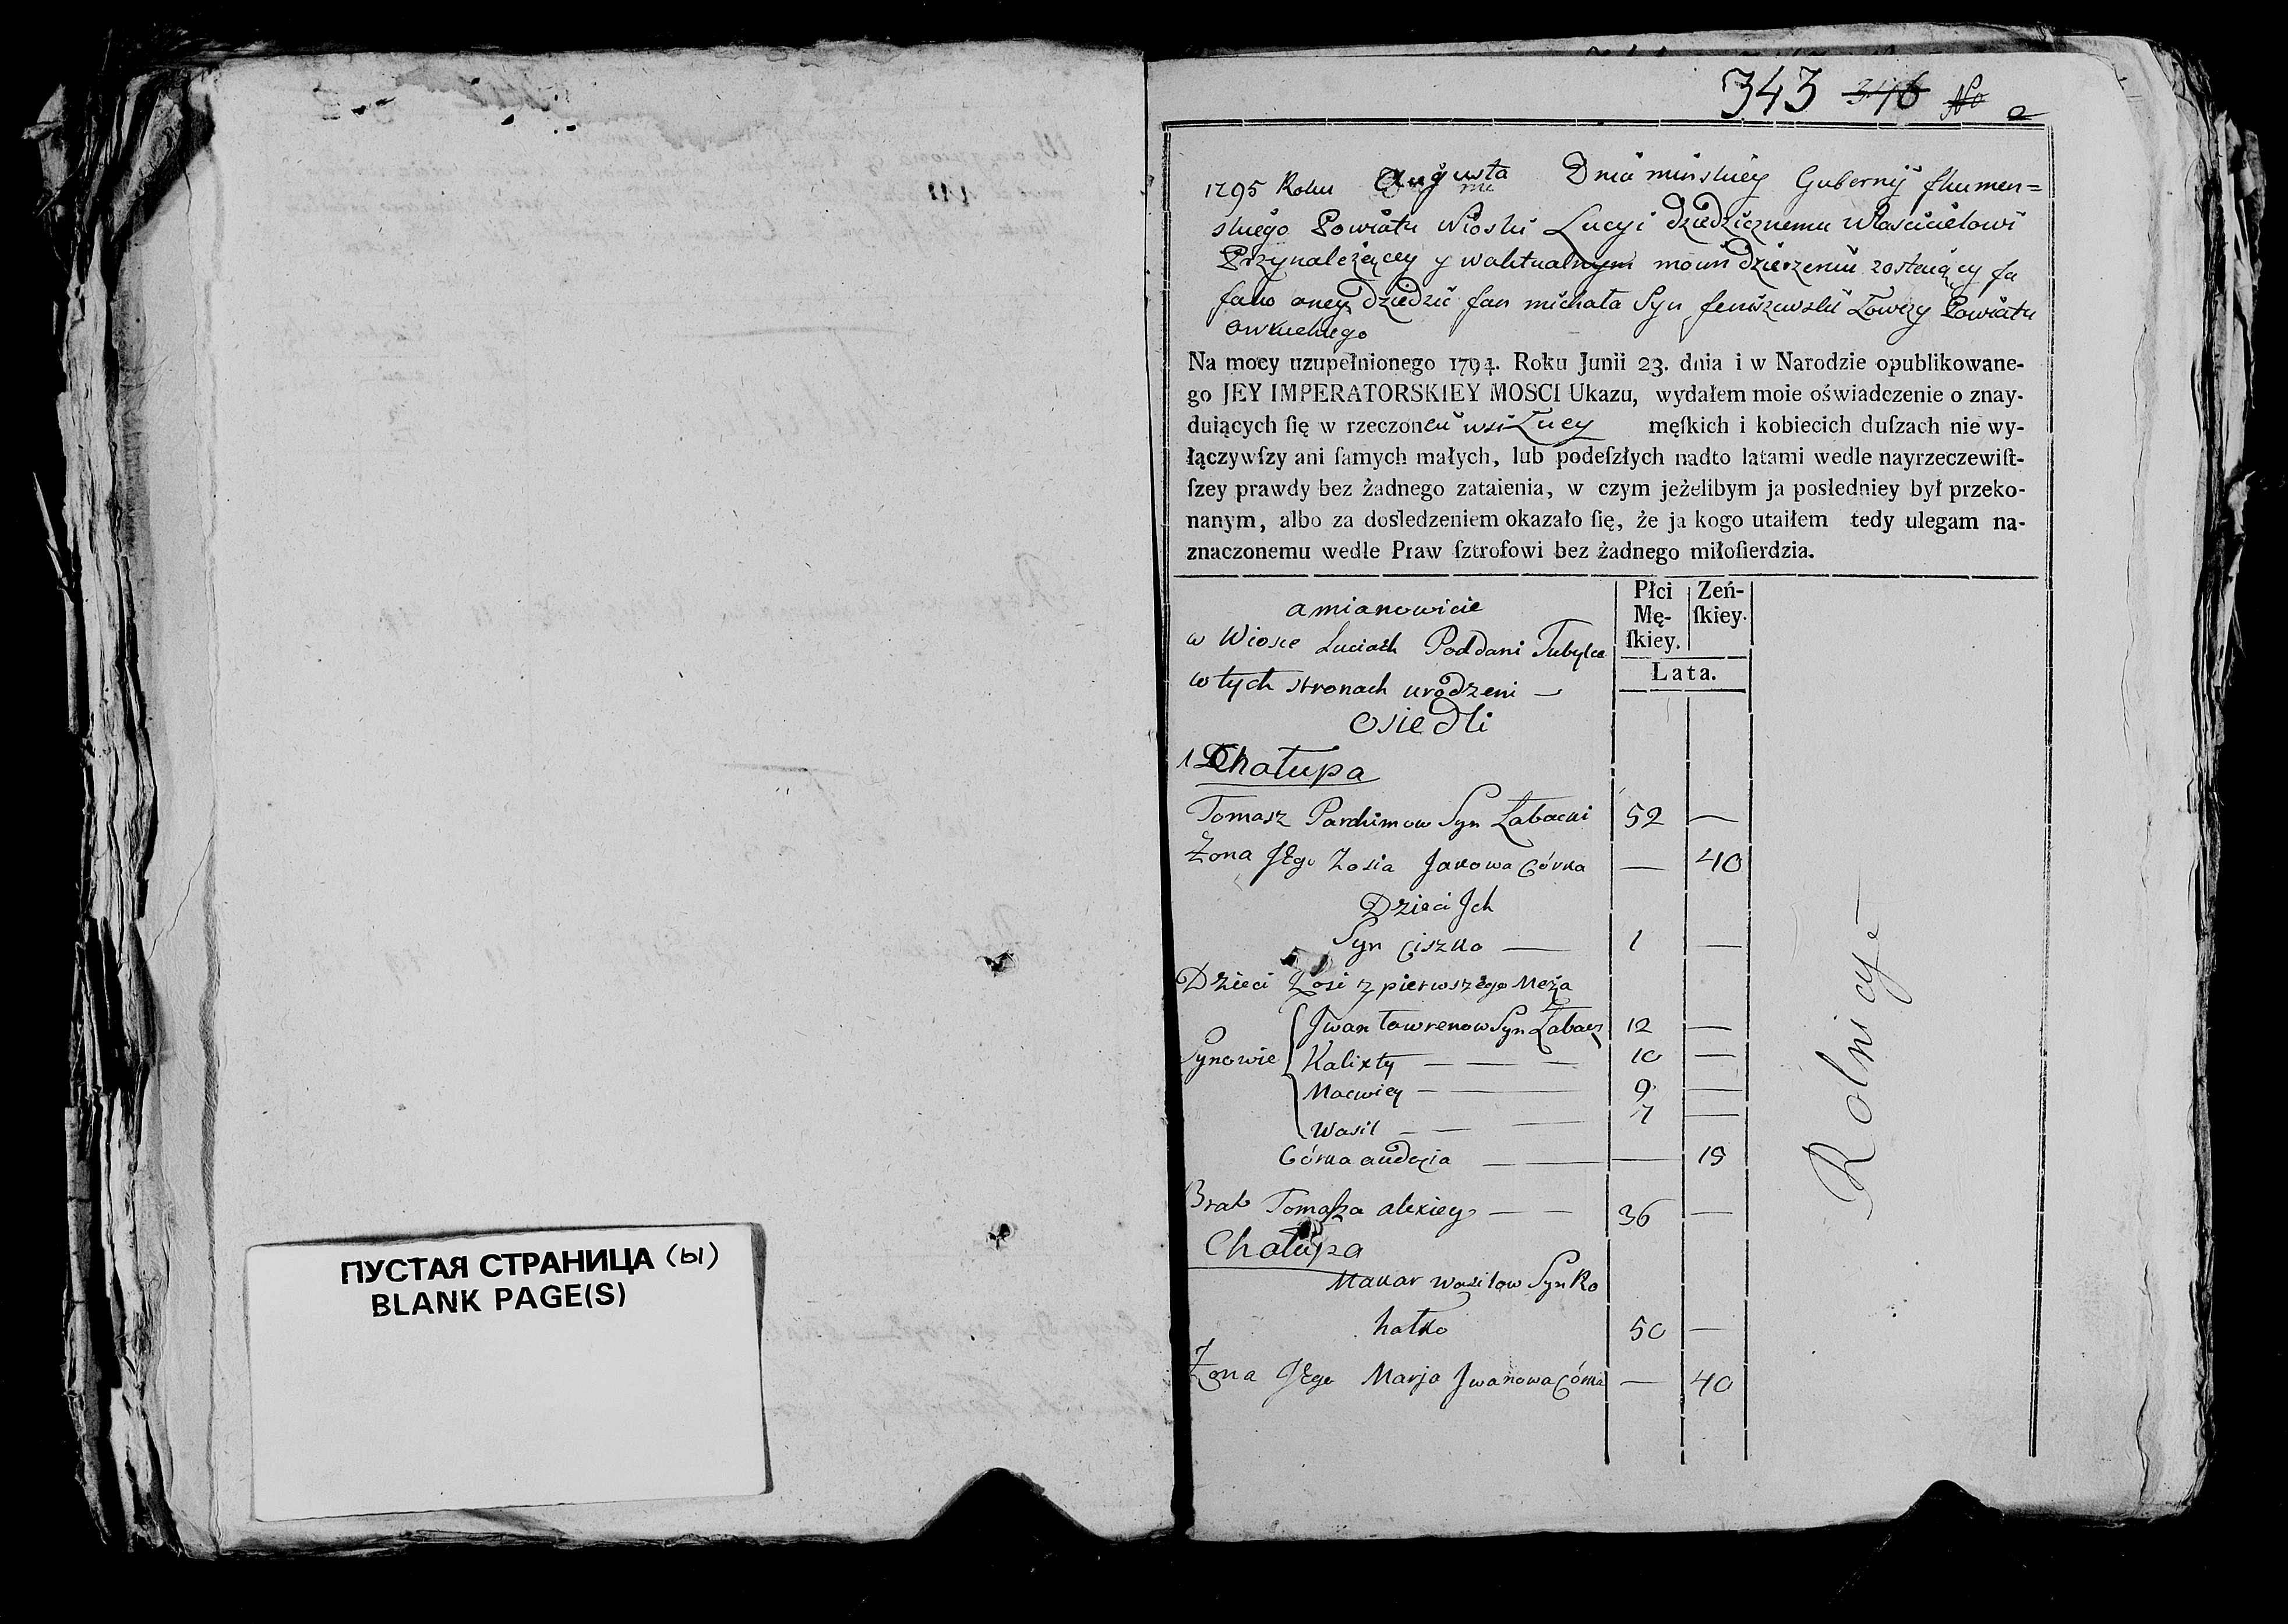 ПУСТАЯ СТРАНИЦА (ы)
BLANK PAGE(S)
343 346 No 2
1795 Roku Augusta Dnia minskiey Gubernij Jhumen=
skiego Powiatu Wioski Lucyi dziedzicznemu Własicielowi
Przynależącey y waktualnym moim dzierzeniu zostaiący Ja
Jako oney dziedzic Jan michała Syn Jeniszewski Łowczy Powiatu
Na mocy uzupełnionego 1794. Roku Junii 23. dnia i w Narodzie opublikowane-
go JEY IMPERATORSKIEY MOSCI Ukazu, wydałem moie oświadczenie o znay-
duiących ſię w rzeczonéii wsi Lucy męſkich i kobiecich duſzach nie wy-
łączywſzy ani ſamych małych, lub podeſzłych nadto latami wedle nayrzeczewiſt-
ſzey prawdy bez żadnego zataienia, w czym jeżelibym ja posledniey był przeko-
nanym, albo za dosledzeniem okazało ſię, że ja kogo utaiłem tedy ulegam na-
znaczonemu wedle Praw ſztrofowi bez żadnego miłoſierdzia.
amianowicie
Płci Męſkiey. Zeńſkiey.
w Wiosce Luciach Poddani Tubylce
Lata.
w tych stronach urodzeni —
osiedli
1 Chałupa
Tomasz Parchimow Syn Łabacki 52 —
Żona JEgo Zosia Jakowa Córka — 40
Dzieci Jch
Syn Ciszko — 1 —
Dzieci Zosi z pierwszego Męża
Jwan Ławrenow Syn Łabac 12 —
Synowie Kalixty — — — 10 —
Macwiey — — 9 —
Wasil — — — 7 —
Córka audocia — — — 15
Brat Tomaſza alexiey — — 36 —
Chałupa
Makar Wasilow Syn Ko
hatko 50 —
Żona JEgo Marja Jwanowa Córka — 40
Rolnicy —